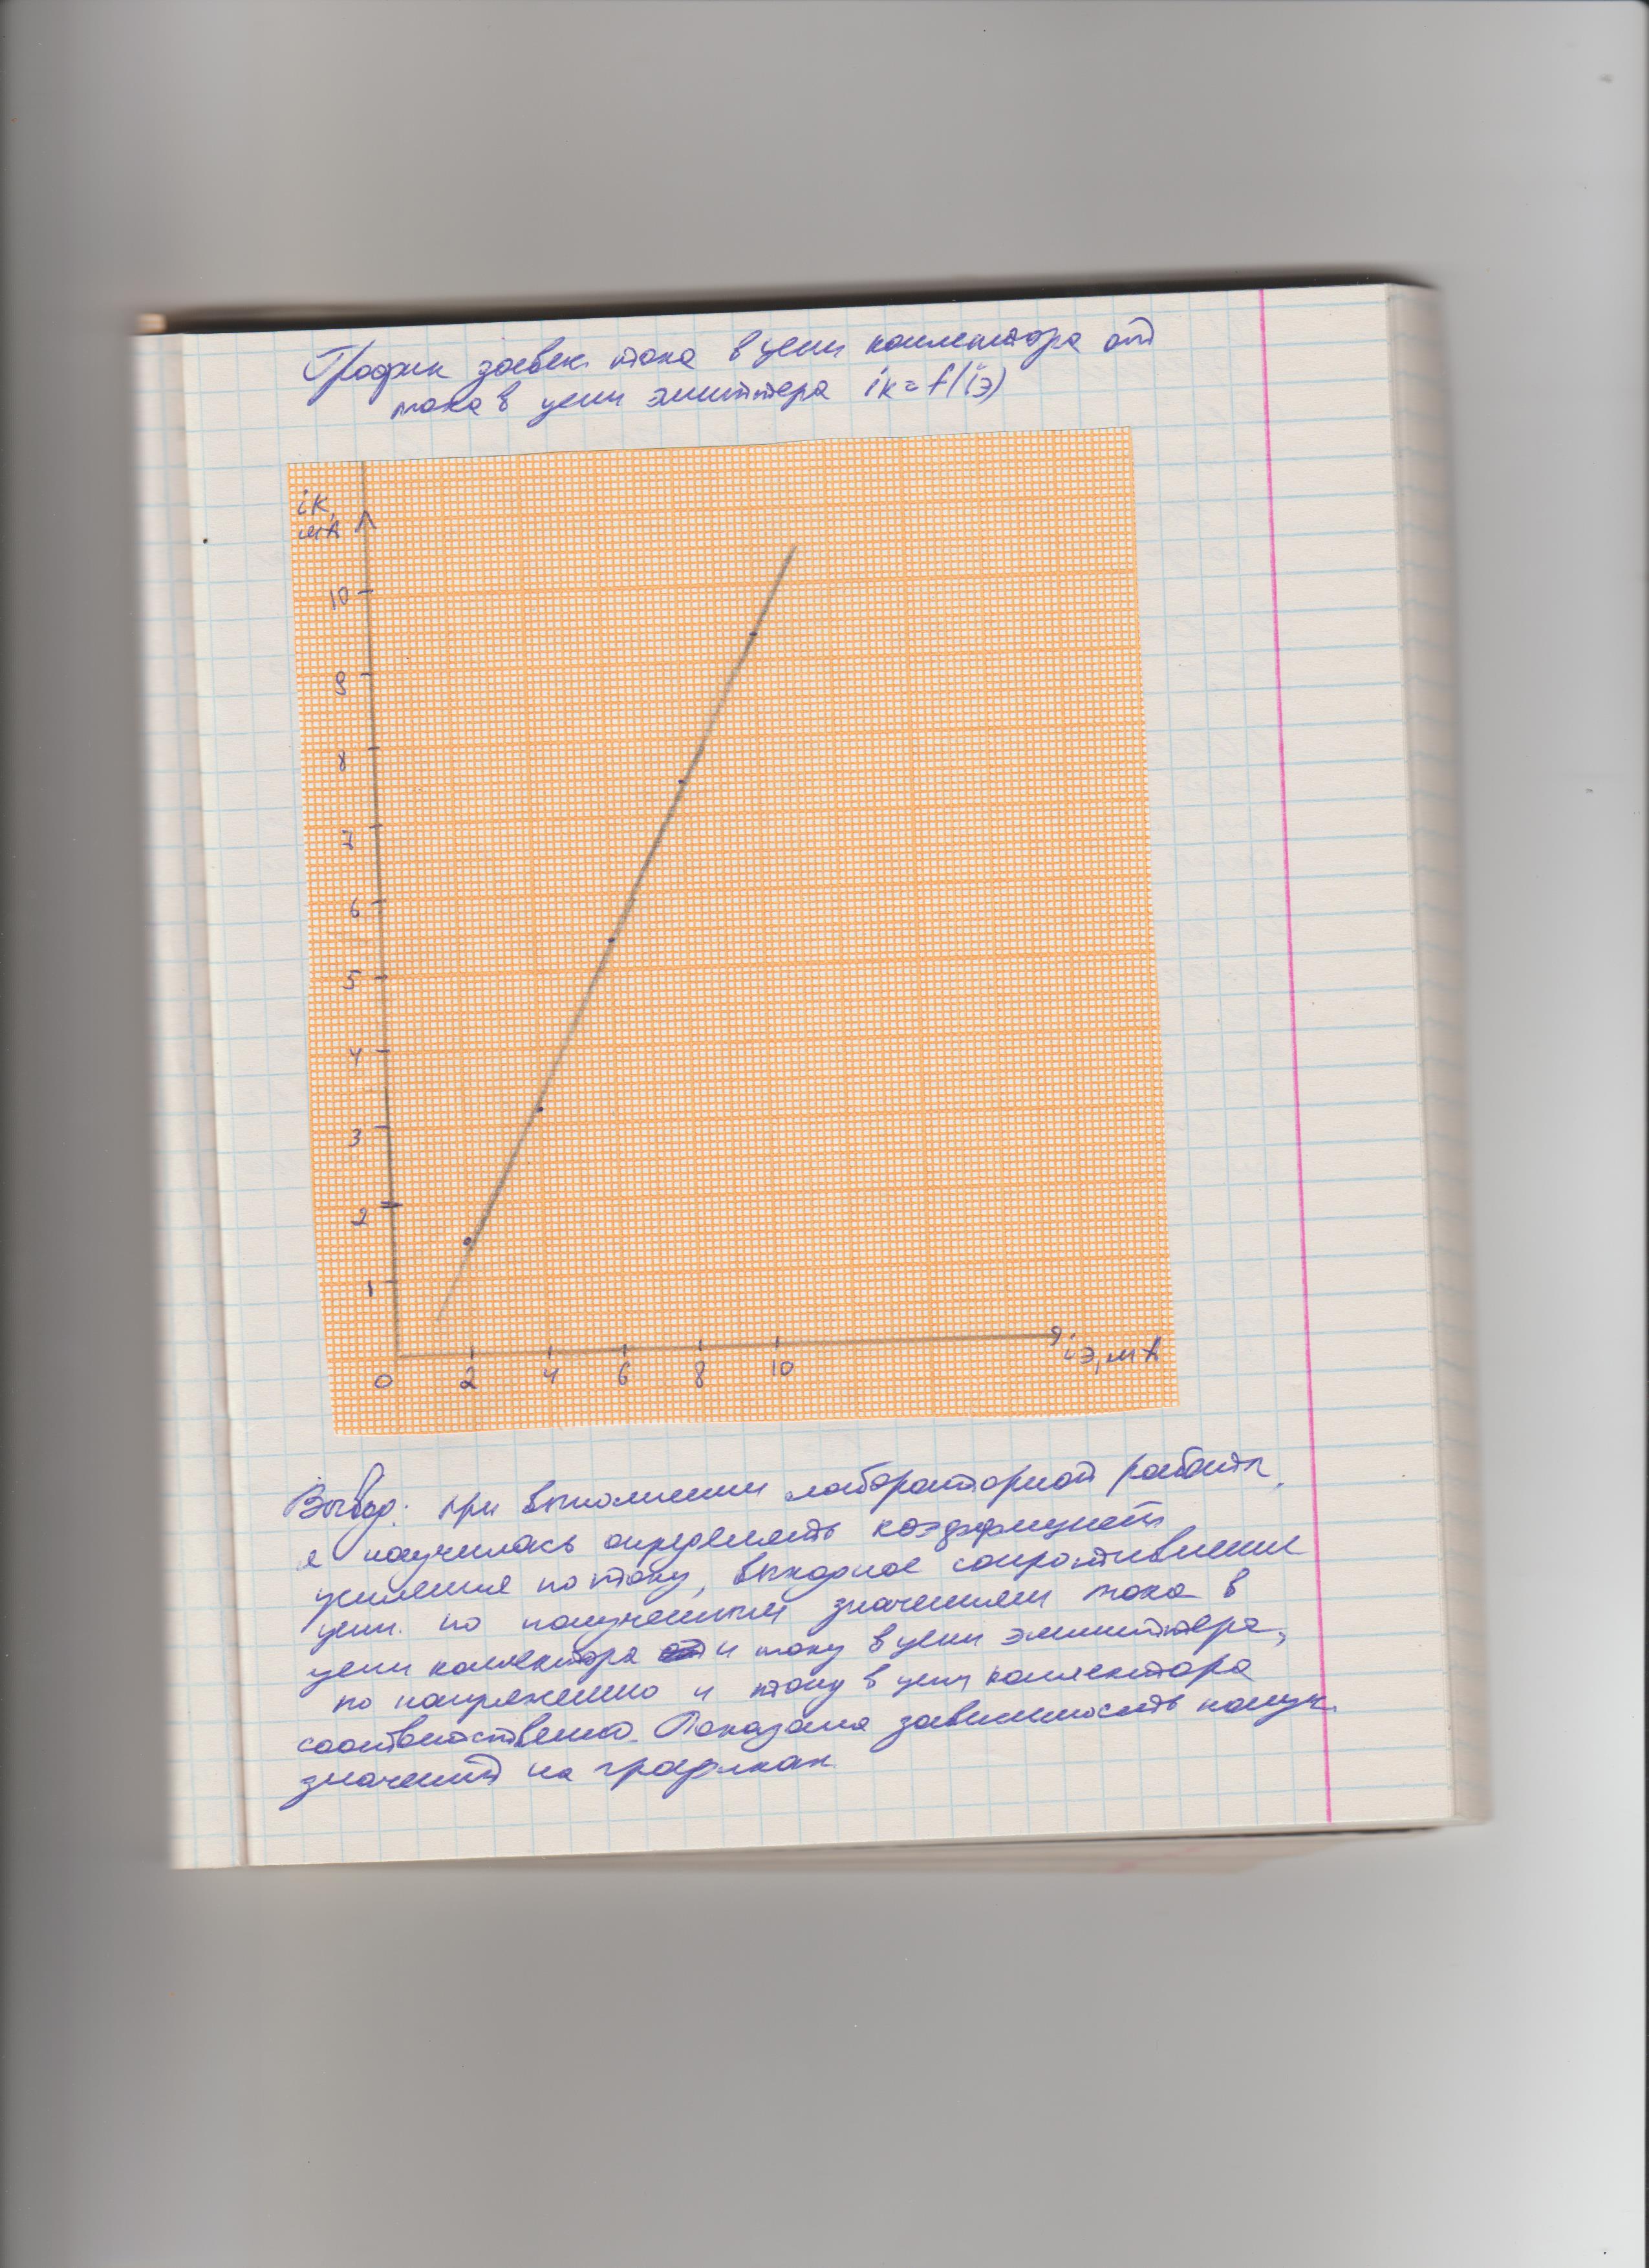 График завис. тока в цепи коллектора от
тока в цепи эмиттера iк = f(iэ)
iк,
мА
10
9
8
7
6
5
4
3
2
1
0 2 4 6 8 10 iэ, мА
Вывод: при выполнении лабораторной работы,
я научилась определять коэффициент
усиления по току, выходное сопротивление
цепи. по полученным значениям тока в
цепи коллектора и току в цепи эмиттера,
по напряжению и току в цепи коллектора
соответственно. Показана зависимость получ.
значений на графиках